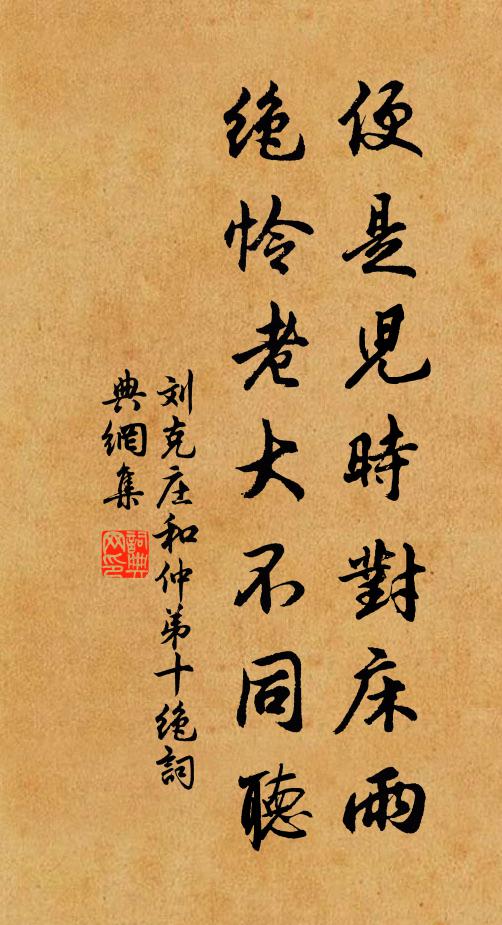 便是兒時對床雨
绝怜老大不同聽
刘克庄和仲弟十绝詞
典網集
詞典
网印